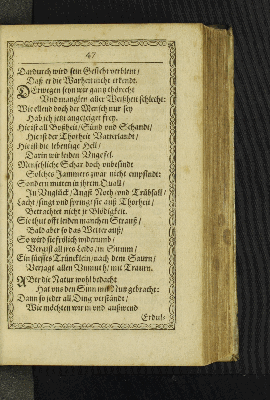 47
Dardurch wird sein Gesicht verblent/
Daß er die Warheit nicht erkendt.
Derwegen seyn wir gantz thörecht
Und manglen aller Weißheit schlecht:
Wie ellend doch der Mensch nur sey
Hab ich jetzt angezeiget frey.
Hie ist all Boßheit/ Sünd und Schandt/
Hie ist der Thorheit Vatterlandt/
Hie ist die lebentige Hell/
Darin wir leiden Ungefell.
Menschliche Schar doch unbesindt
Solches Jammers zwar nicht empfindt:
Sondern mitten in ihrem Quall/
In Unglück/ Angst Noth und Trübsall/
Lacht/ singt und spring/ sie auß Thorheit/
Betrachtet nicht jr Blödigkeit.
Sie thut offt leiden manchen Strauß/
Bald aber so das Wetter auß/
So wird sie frölich widerumb/
Vergist all jres Leids/ in Summ/
Ein süesses Trüncklein/ nach dem Saurn/
Verjagt allen Unmuth/ mit Traurn.
Aber die Natur wohl bedacht
Hat uns den Sinn mit Nutz gebracht:
Dann so jeder all Ding verständt/
Wie möchten wir in und außwend
Erdul⸗